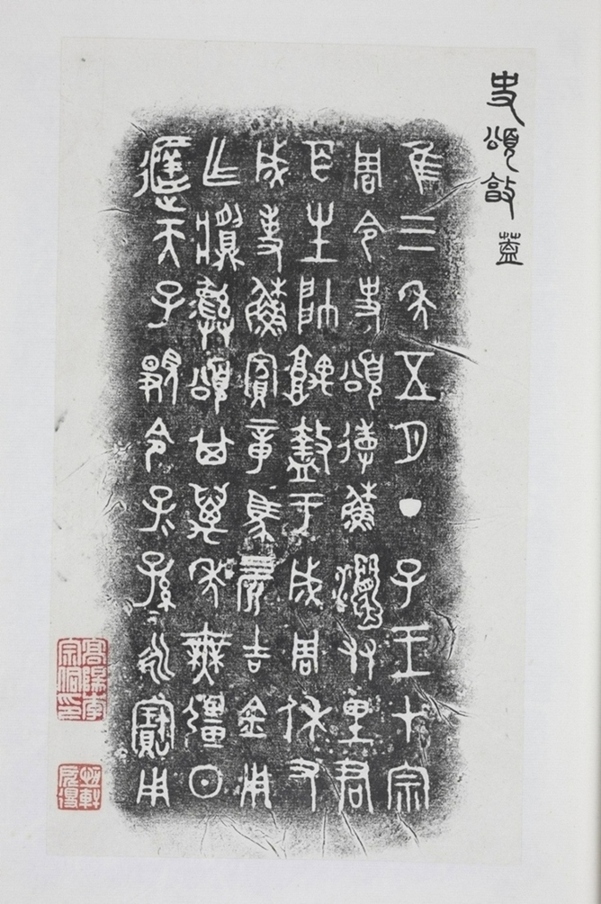 史頌敦 蓋
隹三年五月丁子王才宗
周令史頌省穌友里君
百生帥盩于成周休又
成事穌賓章馬四匹吉金用
乍䵼彝頌其萬年無彊日
天子令子=孫=永寶用
高陽李
宗侗印